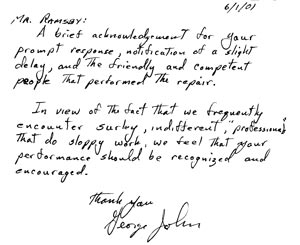 6/1/01
Mr. Ramsey:
A brief acknowledgement for your
prompt response, notification of a slight
delay, and the friendly and competent
people that performed the repair.
In view of the fact that we frequently
encounter surley, indifferent, "professionals"
that do sloppy work, we feel that your
performance should be recognized and
encouraged.
Thank You
George John